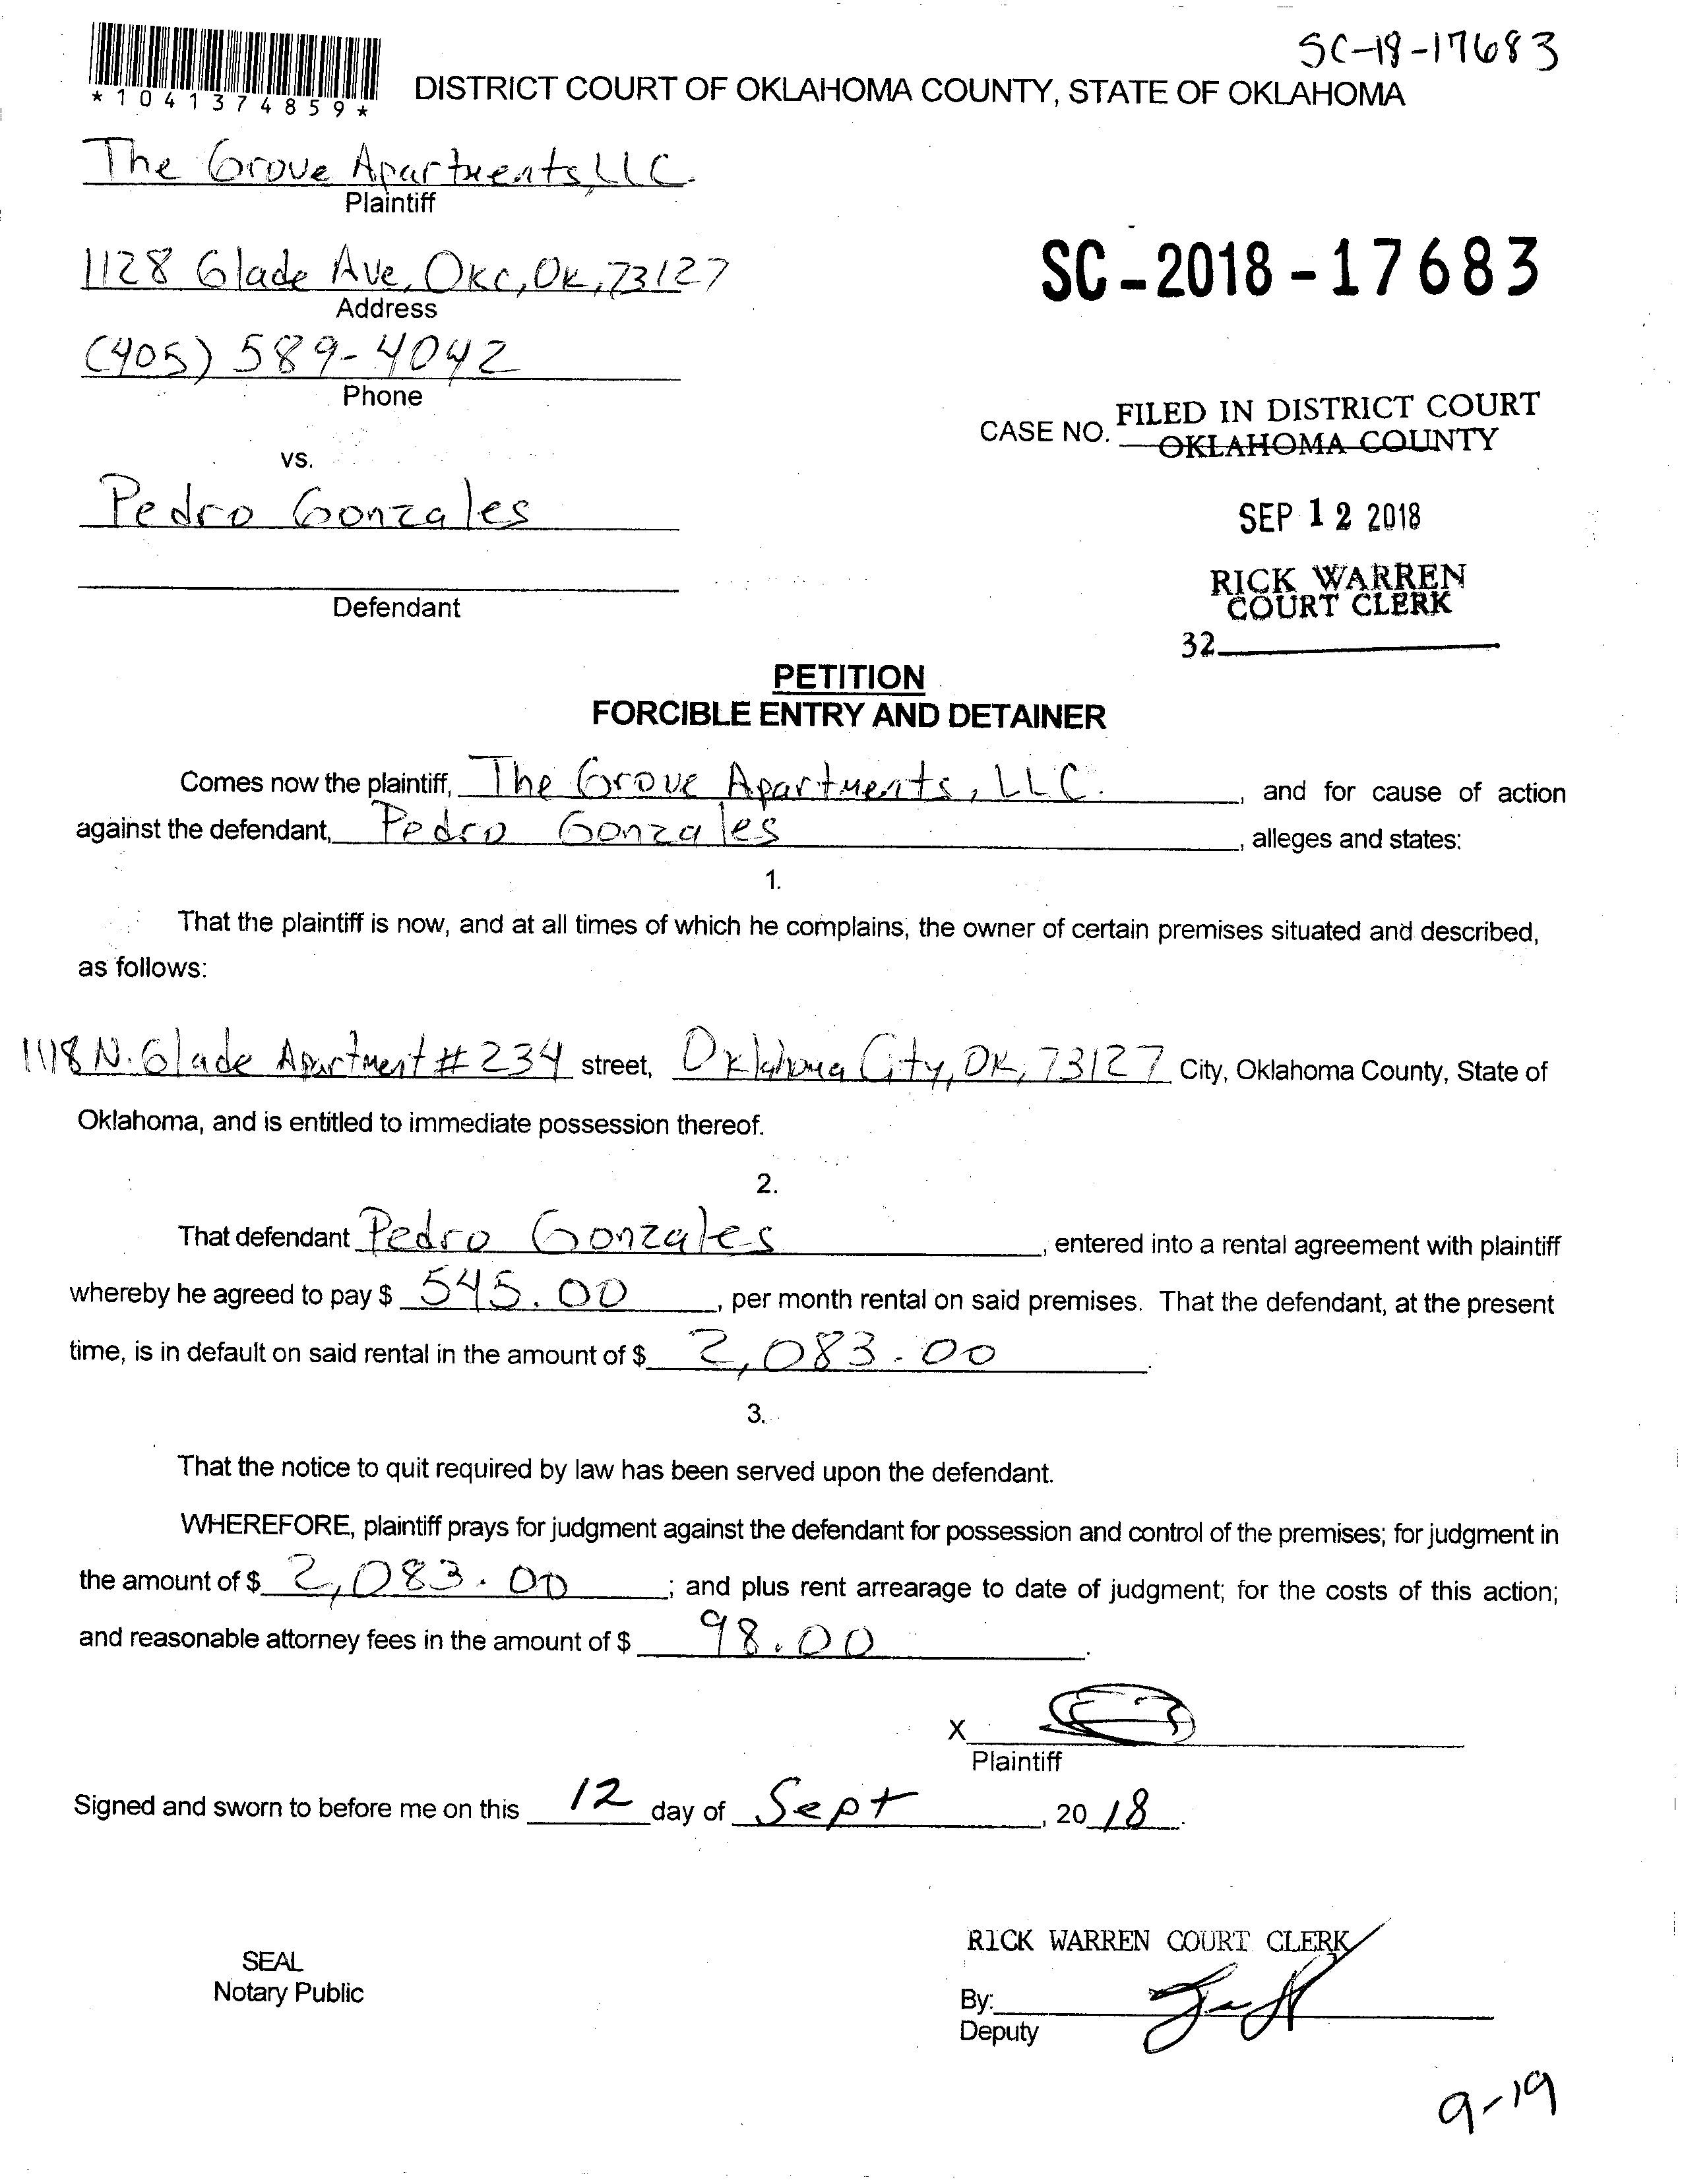 SC-18-17683
*1041374859*
DISTRICT COURT OF OKLAHOMA COUNTY, STATE OF OKLAHOMA
The Grove Apartments, LLC.
Plaintiff
1128 Glade Ave, OKC, OK, 73127
Address
SC-2018-17683
(405) 589-4042
Phone
CASE NO. FILED IN DISTRICT COURT
OKLAHOMA COUNTY
vs.
Pedro Gonzales
SEP 12 2018
Defendant
RICK WARREN
COURT CLERK
32
PETITION
FORCIBLE ENTRY AND DETAINER
Comes now the plaintiff, The Grove Apartments, LLC. , and for cause of action
against the defendant, Pedro Gonzales , alleges and states:
1.
That the plaintiff is now, and at all times of which he complains, the owner of certain premises situated and described,
as follows:
1118 N. Glade Apartment # 234 street, Oklahoma City, OK, 73127 City, Oklahoma County, State of
Oklahoma, and is entitled to immediate possession thereof.
2.
That defendant Pedro Gonzales , entered into a rental agreement with plaintiff
whereby he agreed to pay $ 545.00 , per month rental on said premises. That the defendant, at the present
time, is in default on said rental in the amount of $ 2,083.00 .
3.
That the notice to quit required by law has been served upon the defendant.
WHEREFORE, plaintiff prays for judgment against the defendant for possession and control of the premises; for judgment in
the amount of $ 2,083.00 ; and plus rent arrearage to date of judgment; for the costs of this action;
and reasonable attorney fees in the amount of $ 98.00 .
X
Plaintiff
Signed and sworn to before me on this 12 day of Sept , 20 18 .
RICK WARREN COURT CLERK
SEAL
Notary Public
By:
Deputy
9-19